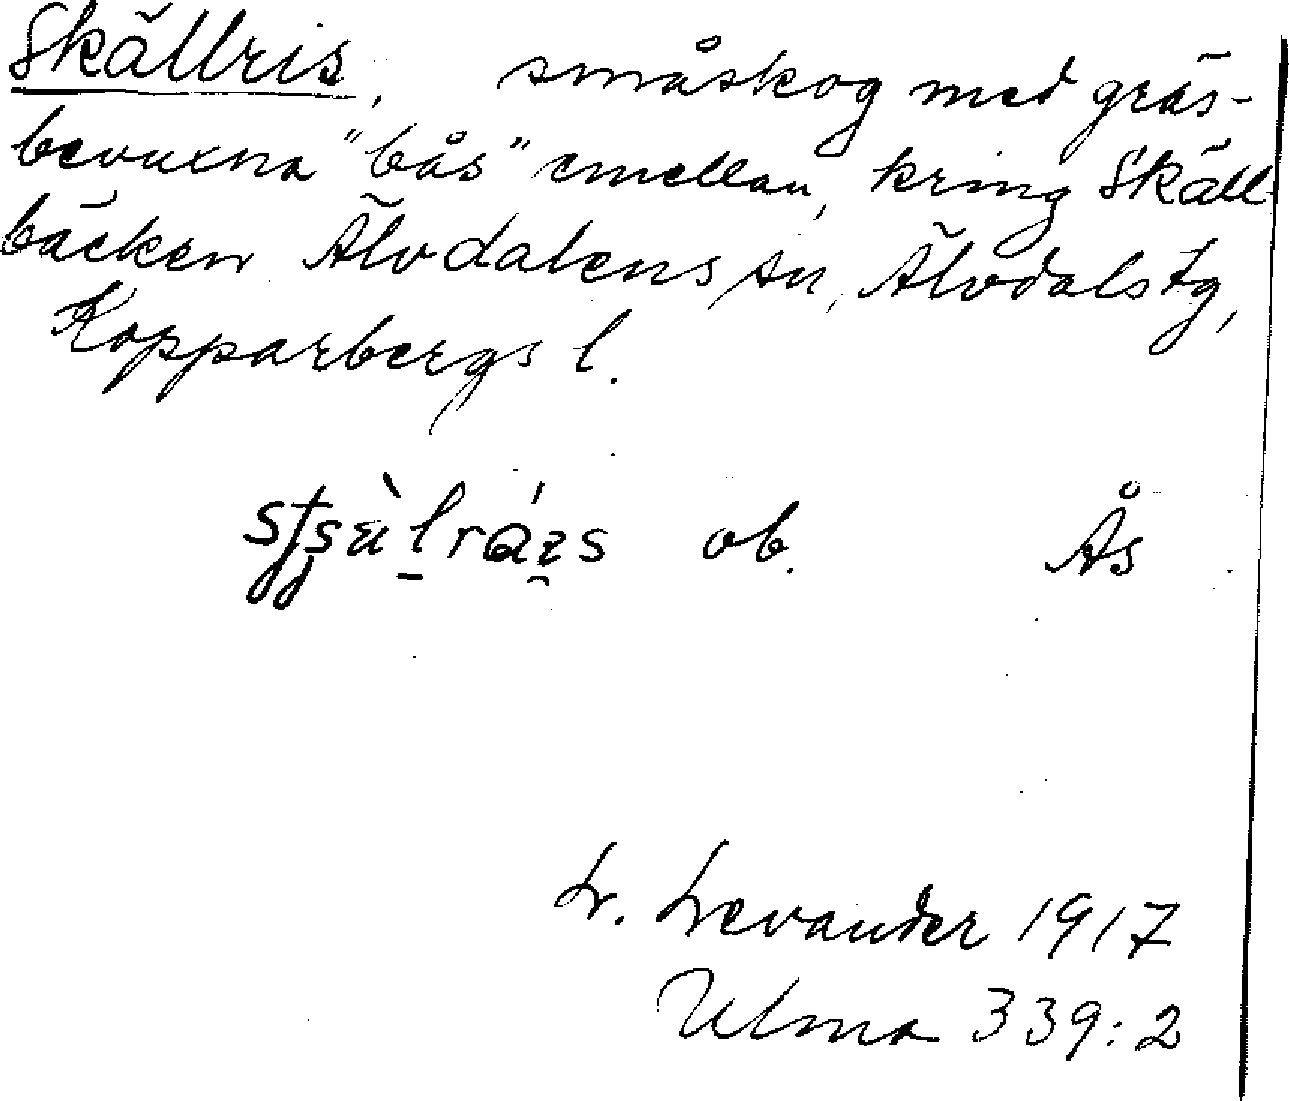 Skällris, småskog med gräs-
bevuxna "bås" emellan, kring Skäll-
bäcken Älvdalens sn, Älvdals tg,
Kopparbergs l.
ob. Ås
L. Levander 1917
Ulma 339:2